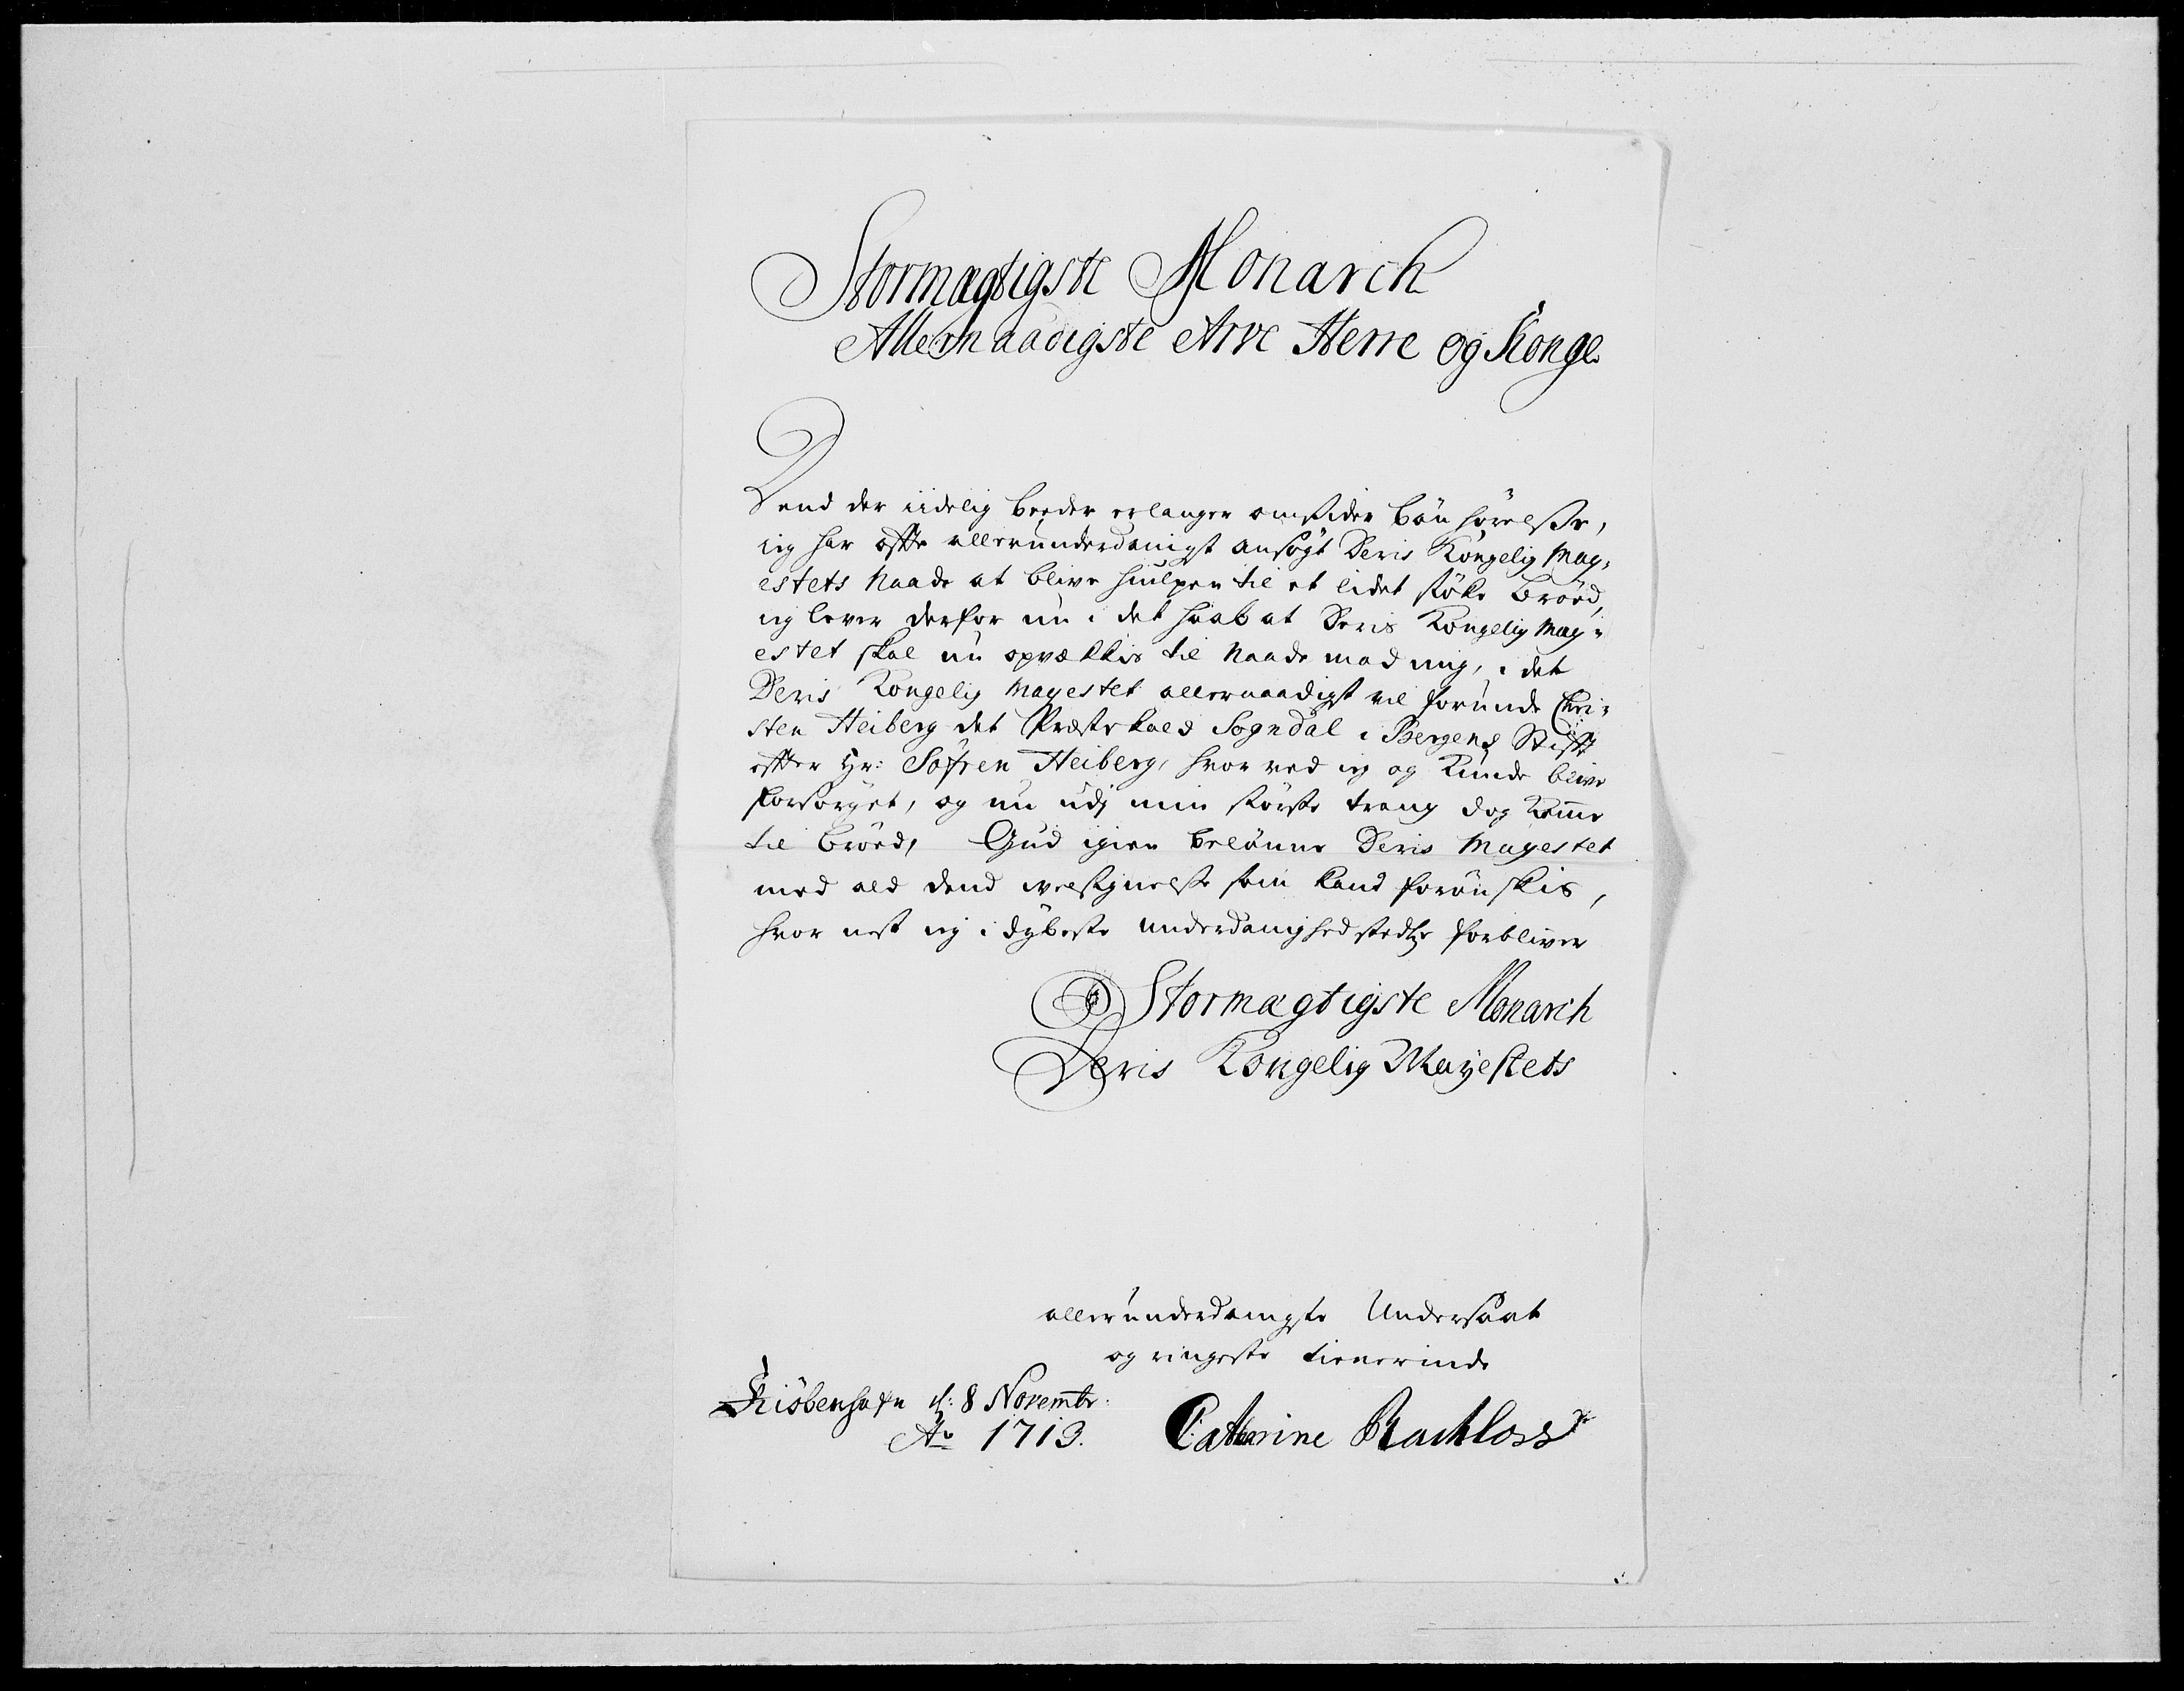 Stormægtigste Monarch
Allernaadigste Arve Herre og Konge
Dend der iidelig beeder erlanger omsider bönhörelsse,
ieg har offte allerunderdanigst ansögt Deris Kongelig May-
estets Naade at blive hiulpen til et lidet støke Brööd,
ieg lever derfor nu i det haab at Deris Kongelig May-
estet skal nu opvækkis til Naade mod mig, i det
Deris Kongelig Mayestet allernaadigst vil forunde Chri-
sten Heiberg det Præste Kald Sogndal i Bergens Stifft
effter Hr: Söfren Heiberg, hvor ved ieg og Kunde blive
forsörget, og nu udj min störste trang dog Komme
til Bröed, Gud igien belönne Deris Mayestet
med ald dend velsignelse som kand forönskis,
hvor nest ieg i dybeste underdanighed stedtze forbliver
Stormægtigste Monarch
Deris Kongelig Mayestets
allerunderdanigste Undersaat
og ringeste tienerinde
Kiöbenhafn d: 8 Novembr:
Ao 1713.
Catherine Rachloss